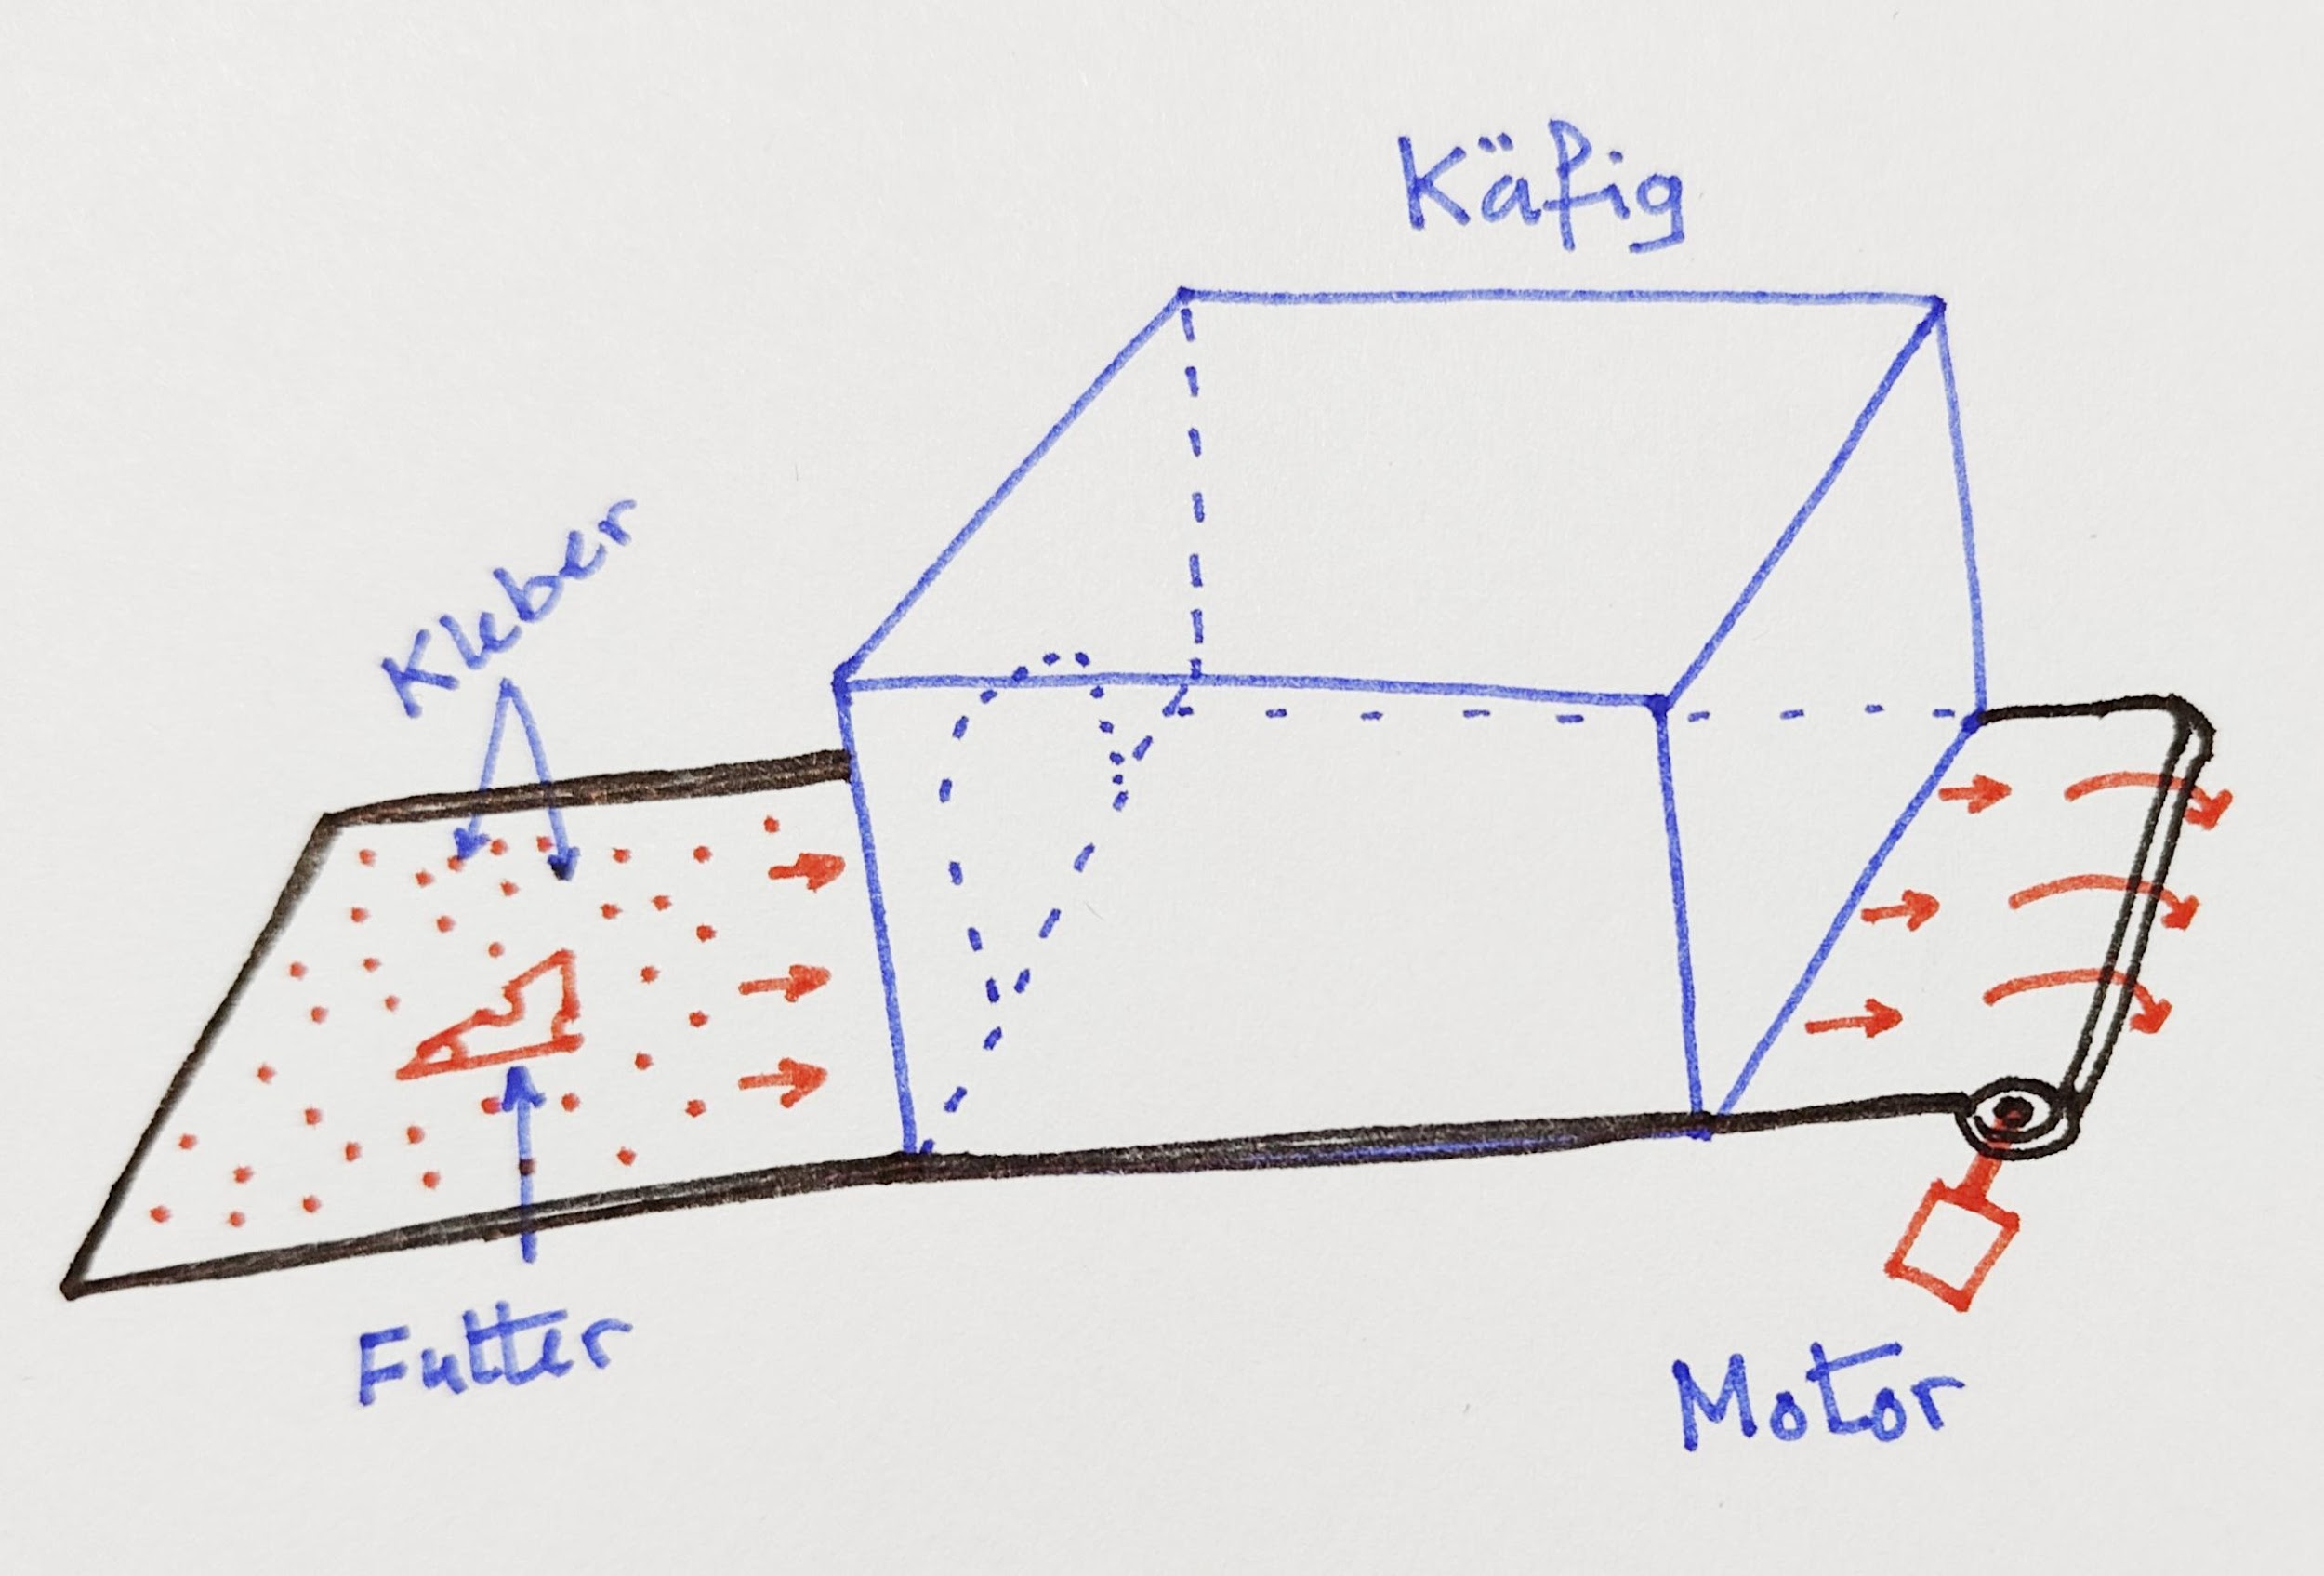 Käfig
Kleber
Futter
Motor